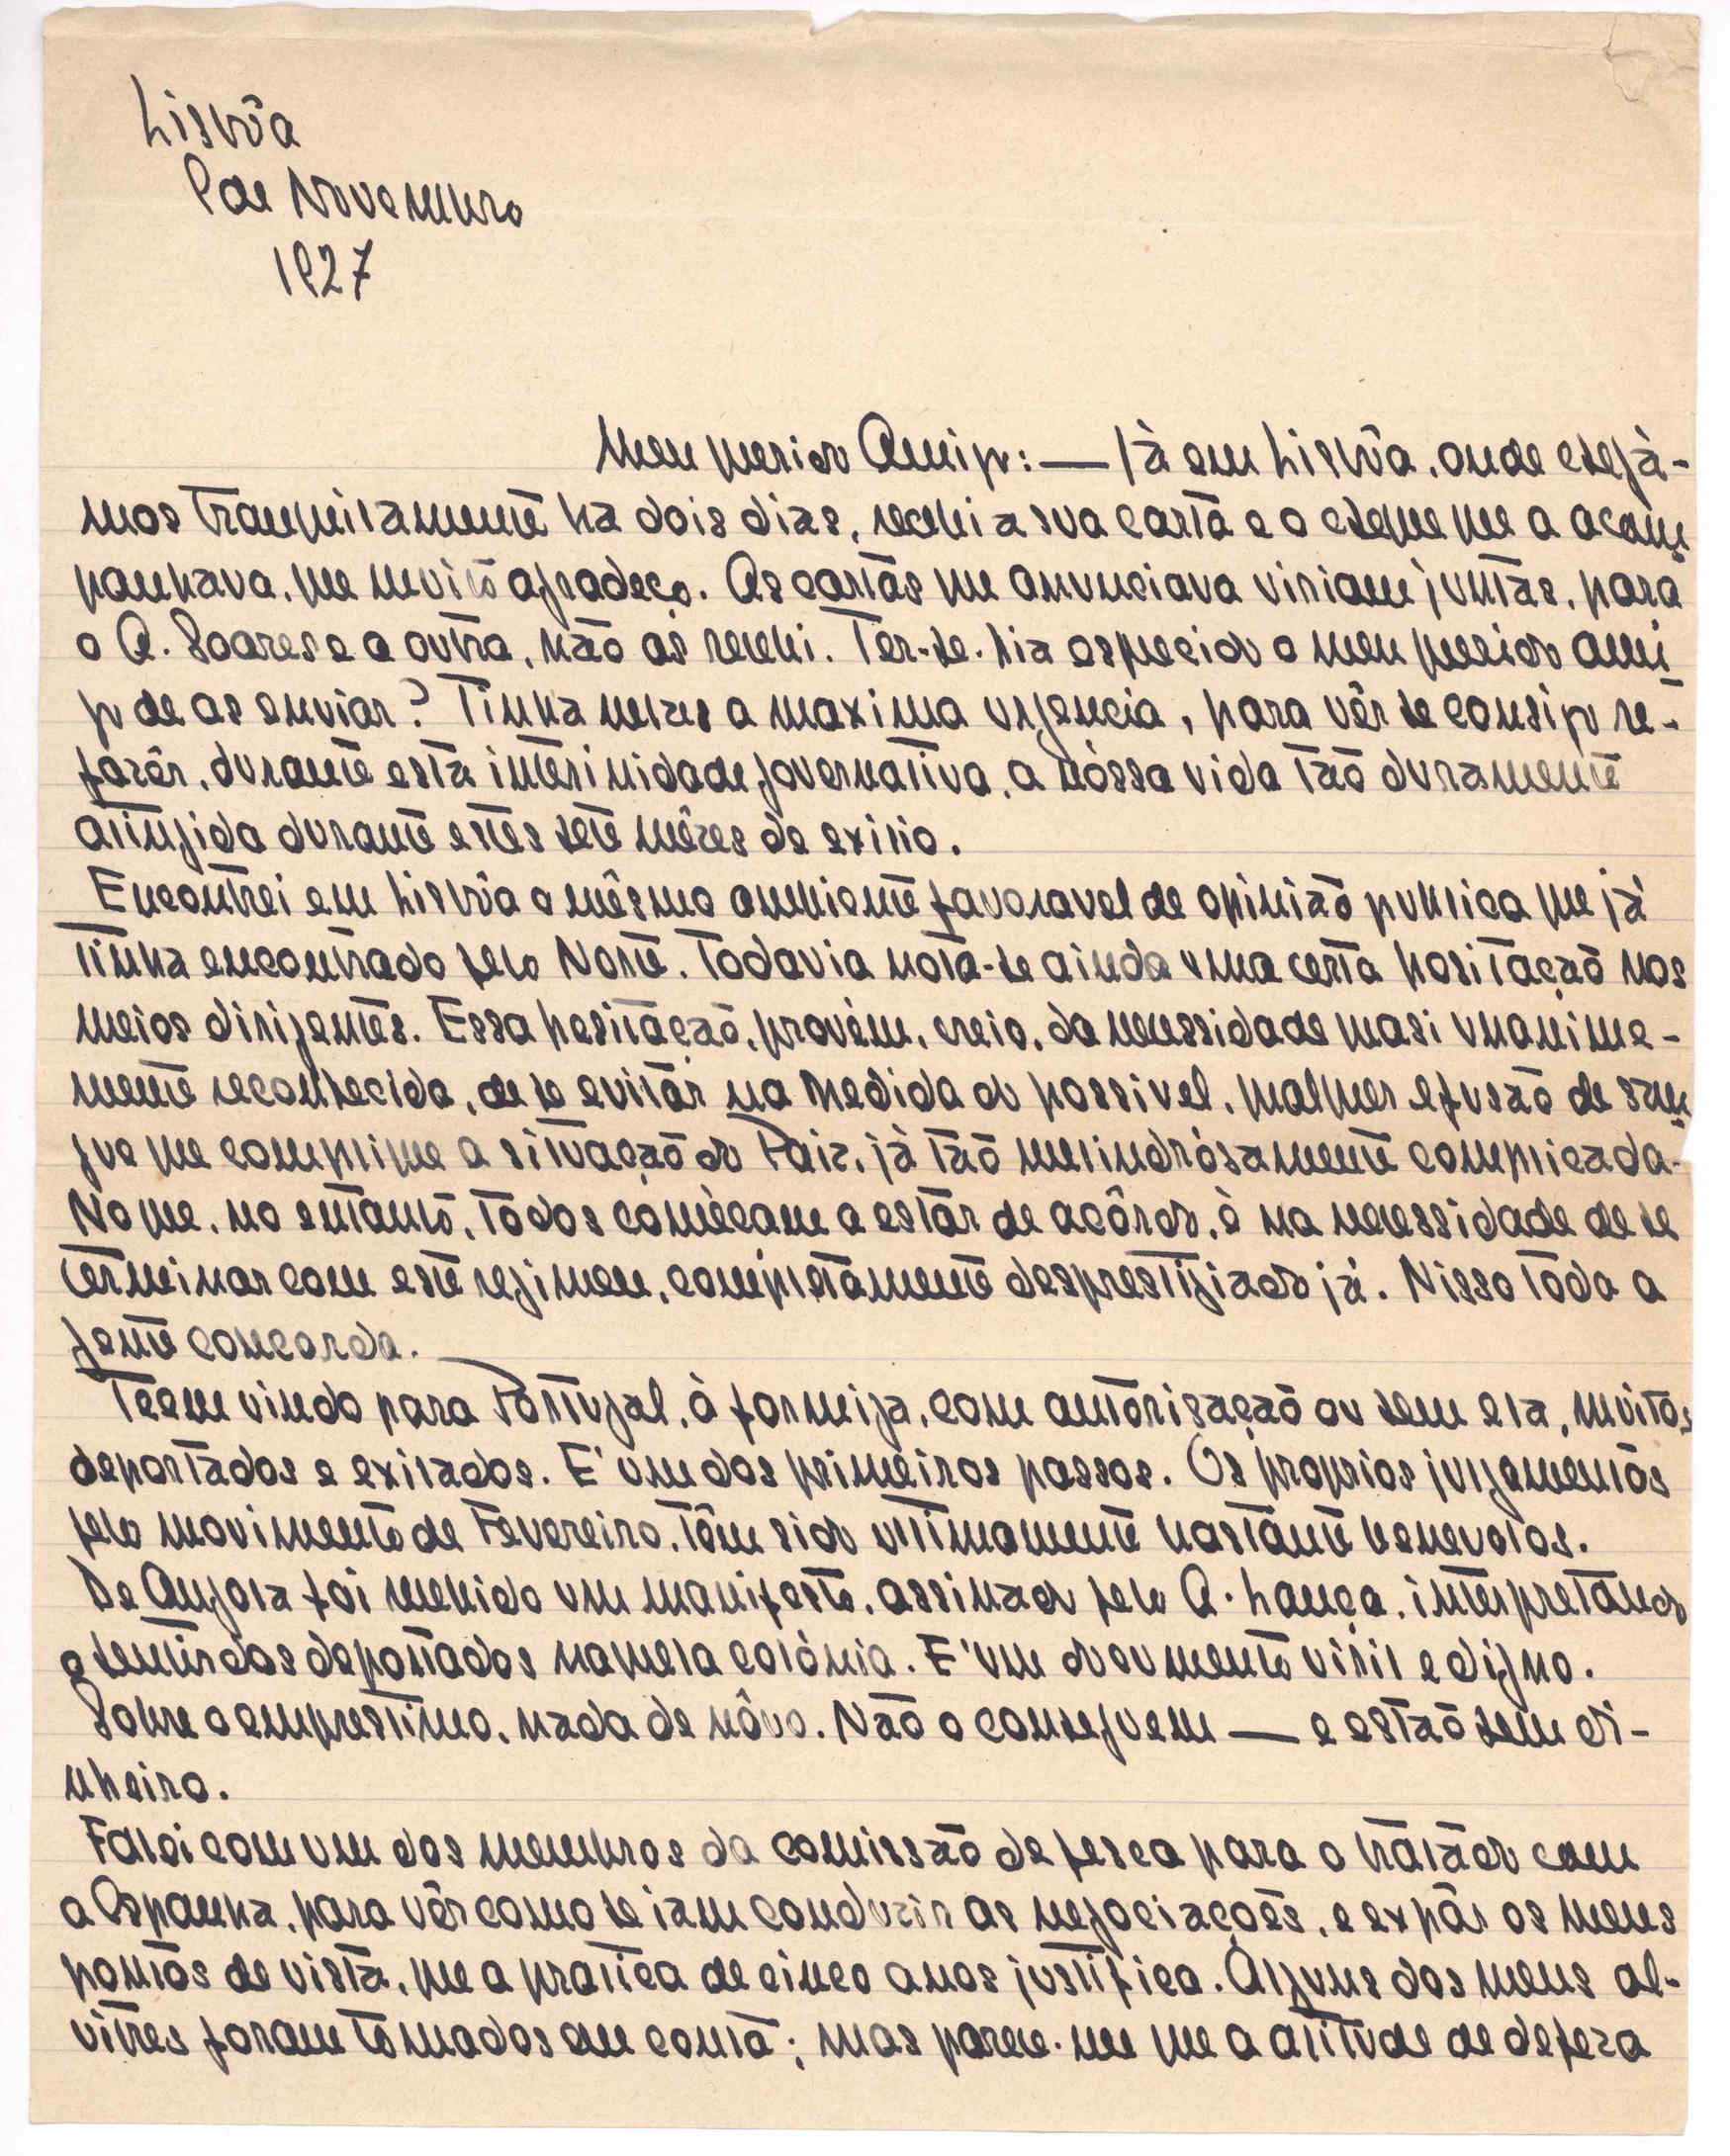 Lisbôa
9 de Novembro
1927
Meu querido Amigo: — Já em Lisbôa, onde estejá-
mos tranquilamente ha dois dias, recebi a sua carta e o cheque que a acom
panhava, que muito agradeço. As cartas que anunciava viriam juntas, para
o A. Soares e a outra, não as recebi. Ter-se-hia esquecido o meu querido ami
go de as enviar? Tinha nelas a maxima urgencia, para vêr se consigo re-
fazêr, durante esta interinidade governativa, a nóssa vida tão duramente
atingida durante estes sete mêzes de exilio.
Encontrei em Lisbôa o mêsmo ambiente favoravel de opinião publica que já
tinha encontrado pelo Norte. Todavia nota-se ainda uma certa hesitação nos
meios dirigentes. Essa hesitação, provém, creio, da necessidade quasi unanime-
mente reconhecida, de se evitár na medida do possivel, qualquer efusão de san
gue que complique a situação do Paiz, já tão melindrósamente complicada.
No que, no entanto, todos coméçam a estár de acôrdo, é na necessidade de se
terminar com este regimen, complétamente desprestigiado já. Nisso toda a
gente concorda.
Teem vindo para Portugal, á formiga, com autorisação ou sem ela, muitos
deportados e exilados. E' um dos primeiros passos. Os proprios julgamentos
pelo movimento de Fevereiro, têm sido ultimamente bastante benevolos.
De Angola foi recebido um manifesto, assinado pelo A. Lança, interpretando
o sentir dos deportados naquela colónia. E' um documento viril e digno.
Sobre o emprestimo, nada de nôvo. Não o conseguem — e estão sem di-
nheiro.
Falei com um dos membros da comissão de pesca para o tratado com
a Espanha, para vêr como se iam conduzir as negociações, e expôr os meus
pontos de vista, que a pratica de cinco anos justifica. Alguns dos meus al-
vitres foram tomados em conta; mas parece-me que a atitude de defeza